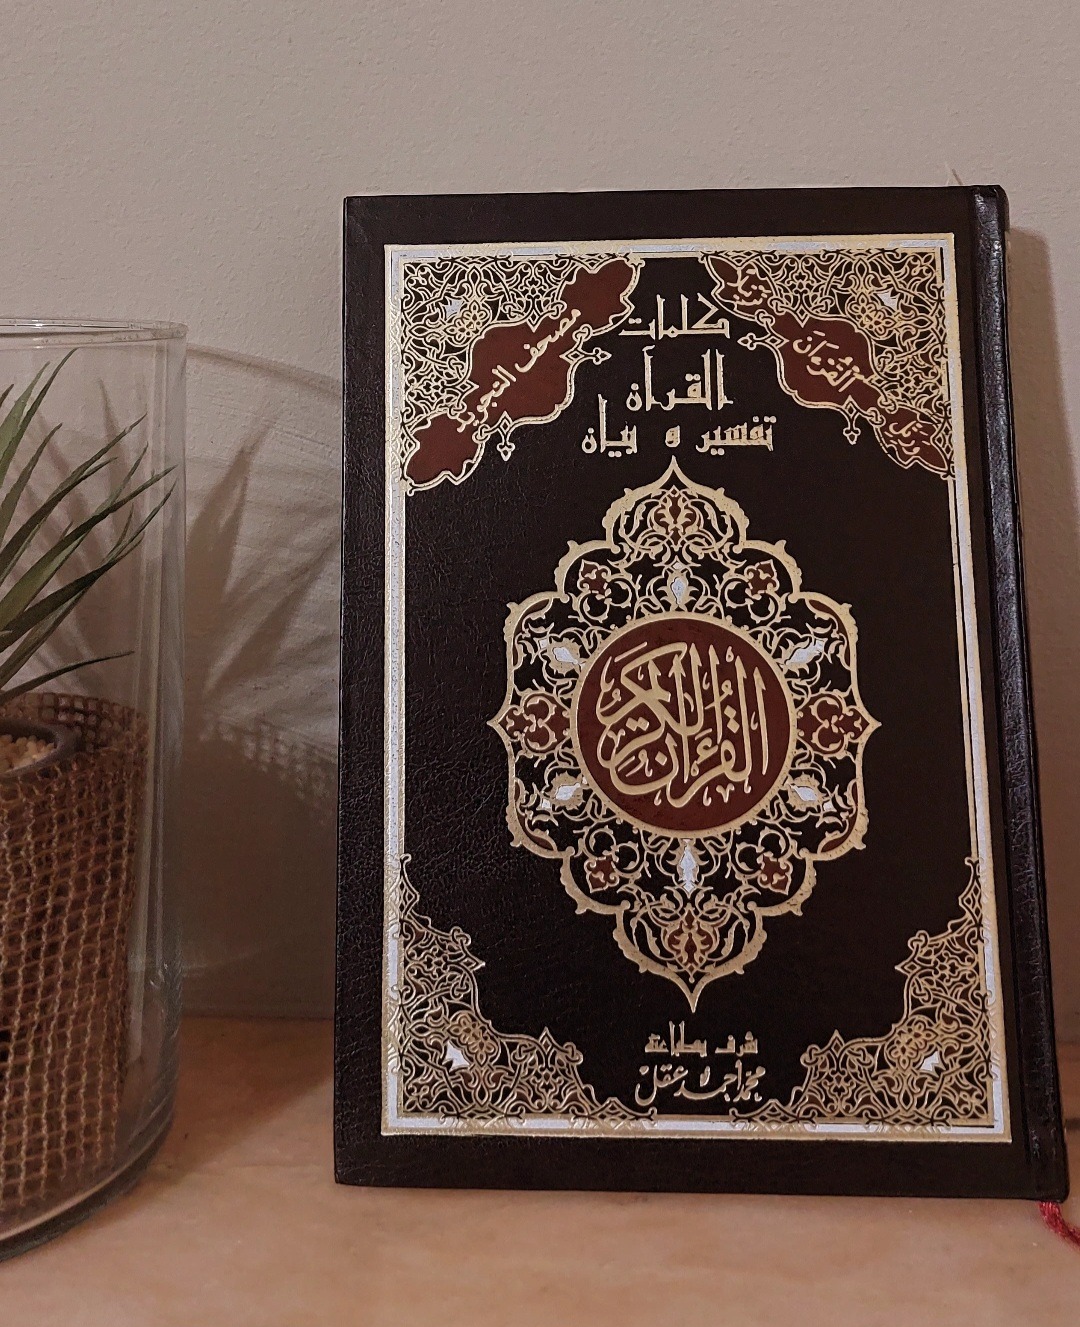 مصحف التجويد
ورتل
القرءان
ترتيلا
كلمات
القرآن
تفسير و بيان
القرءان الكريم
شرف بطباعته
محمد أحمد عقل